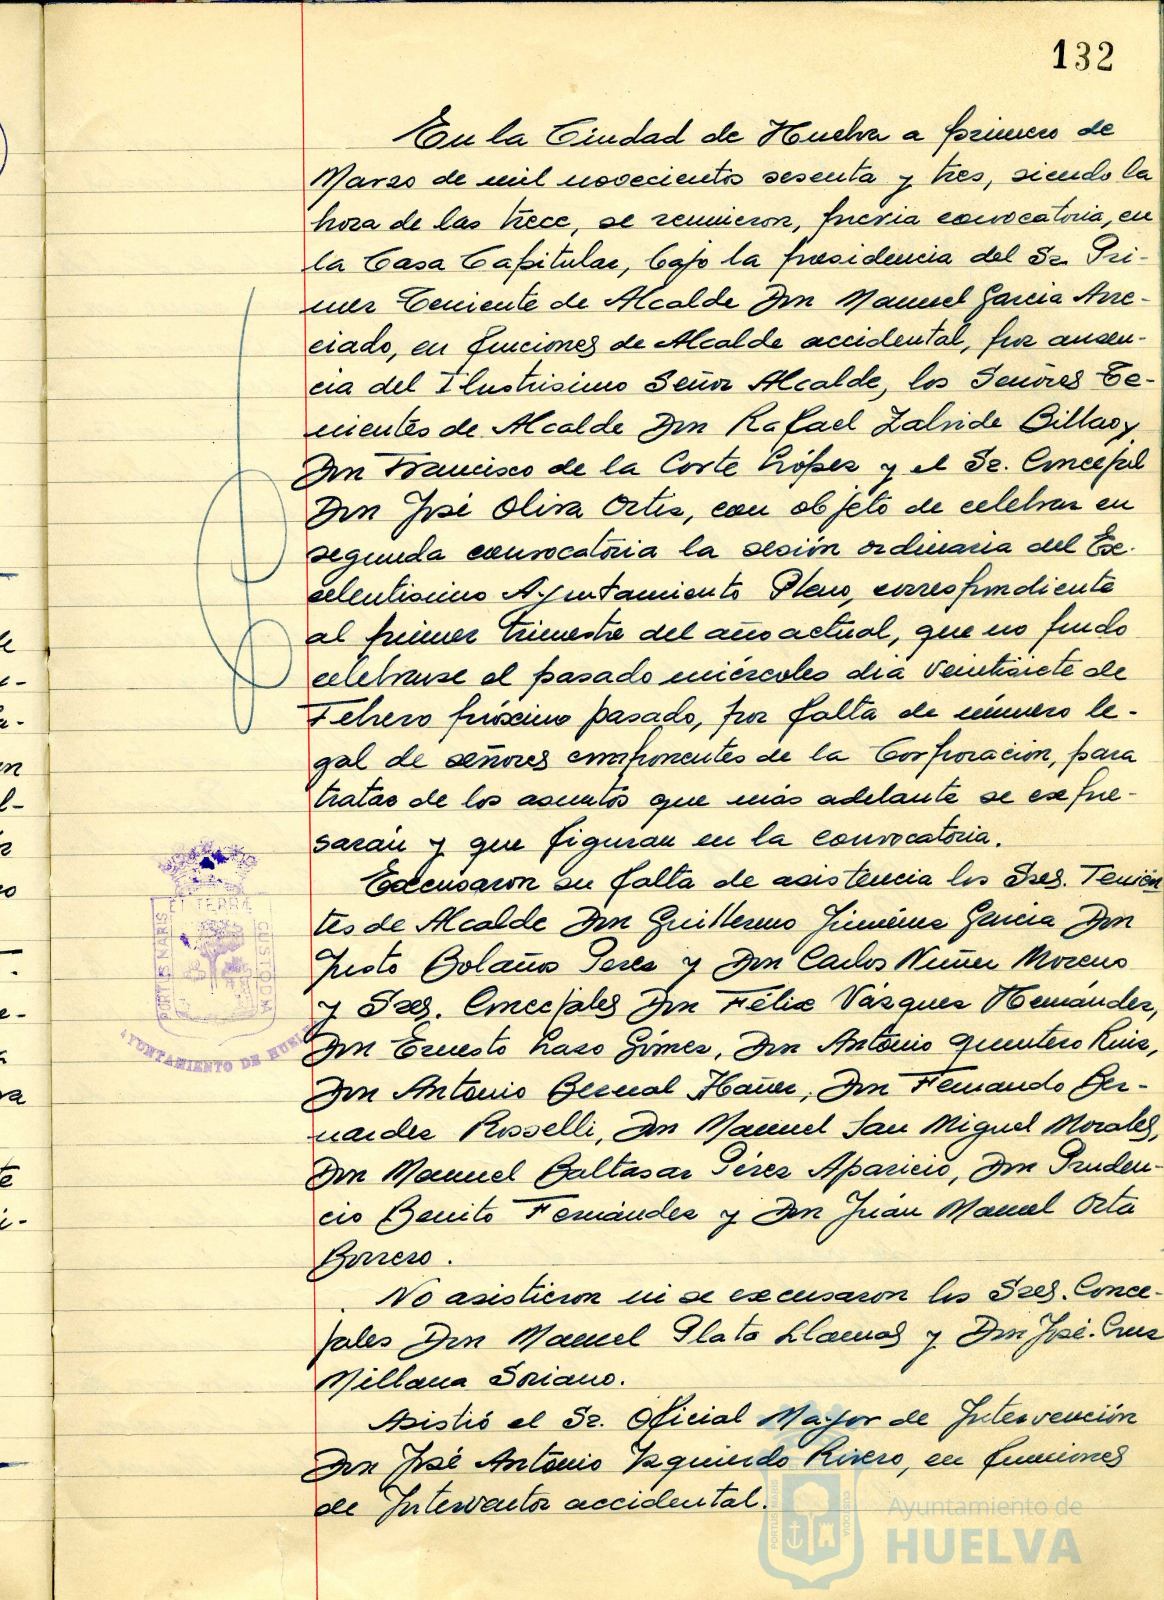 132
En la Ciudad de Huelva a primero de
Marzo de mil novecientos sesenta y tres, siendo la
hora de las trece, se reunieron, previa convocatoria, en
la Casa Capitular, bajo la presidencia del Sr. Pri-
mer Teniente de Alcalde Don Manuel Garcia Arre-
ciado, en funciones de Alcalde accidental, por ausen-
cia del Ilustrisimo Señor Alcalde, los Señores Te-
nientes de Alcalde Don Rafael Zalvide Bilbao y
Don Francisco de la Corte López y el Sr. Concejal
Don José Oliva Ortiz, con objeto de celebrar en
segunda convocatoria la sesión ordinaria del Ex-
celentisimo Ayuntamiento Pleno, correspondiente
al primer trimestre del año actual, que no pudo
celebrarse el pasado miércoles dia veintisiete de
Febrero próximo pasado, por falta de número le-
gal de señores componentes de la Corporación, para
tratar de los asuntos que más adelante se expre-
sarán y que figuran en la convocatoria.
Excusaron su falta de asistencia los Sres. Tenien
tes de Alcalde Don Guillermo Jiménez Garcia Don
Justo Bolaños Perez y Don Carlos Nuñez Moreno
y Sres. Concejales Don Félix Vázquez Hernández,
Don Ernesto Lazo Gómez, Don Antonio Quintero Ruiz,
Don Antonio Bernal Ibañez, Don Fernando Ber-
nardez Rosselli, Don Manuel San Miguel Morales,
Don Manuel Baltasar Pérez Aparicio, Don Pruden-
cio Benito Fernández y Don Juán Manuel Orta
Borrero.
No asistieron ni se excusaron los Sres. Conce-
jales Don Manuel Plata Llamas y Don José Cruz
Millana Soriano.
Asistió el Sr. Oficial Mayor de Intervención
Don José Antonio Izquierdo Rivero, en funciones
de Interventor accidental.
PORTUS MARIS
ET TERRÆ
CUSTODIA
AYUNTAMIENTO DE HUELVA
PORTUS MARIS
CUSTODIA
Ayuntamiento de
HUELVA